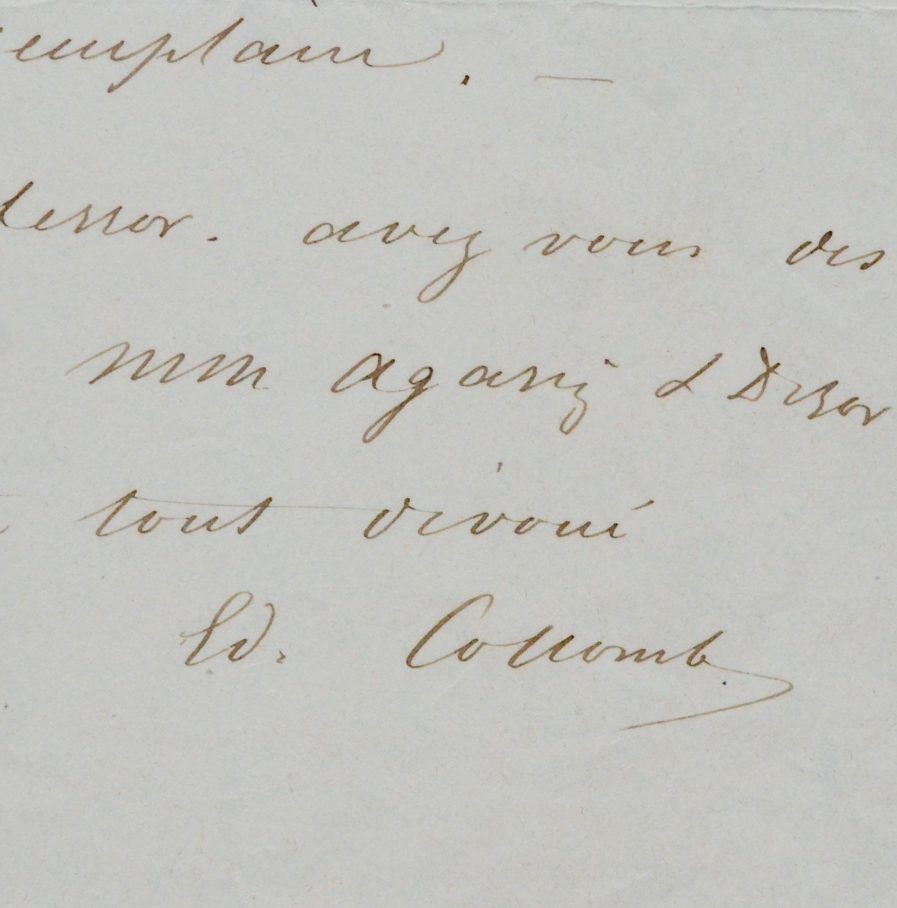 exemplaire. —
dessor. avez vous des
mm agassiz & Desor
tout dévoué
Ed. Collomb